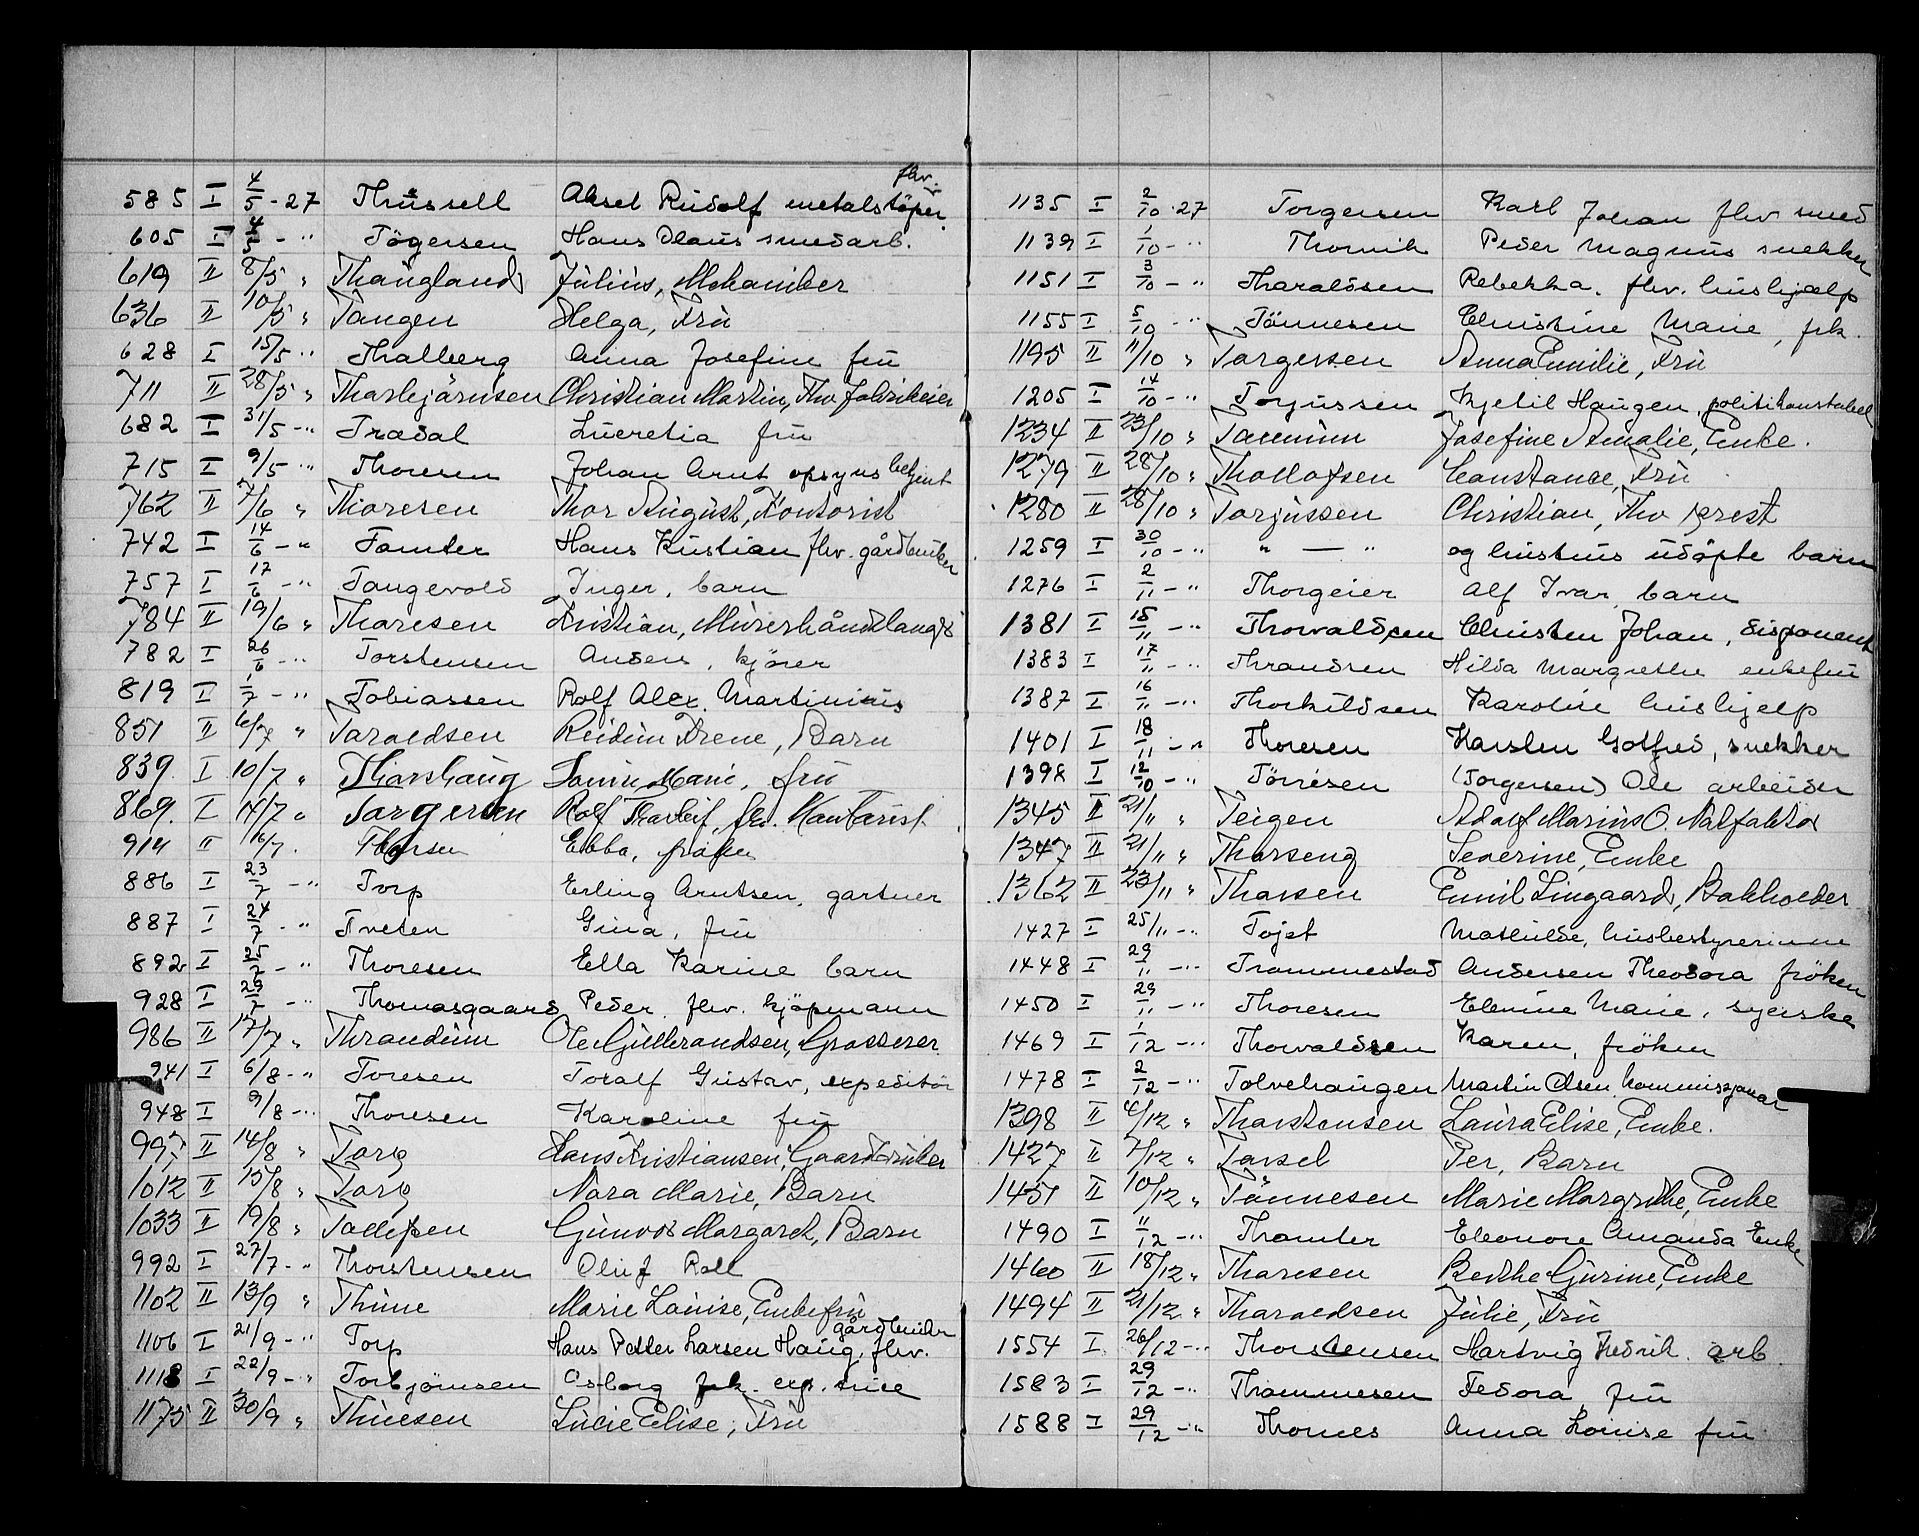 585 I 4/5 - 27 Thussell Aksel Rudolf metalstöper fhv.
605 I 4/5 - " Tögersen Hans Olaus smedarb.
619 II 8/5 " Thaugland Julius, Mekaniker
636 II 10/5 " Tangen Helga, Fru
628 I 15/5 " Thalberg Anna Josefine fru
711 II 28/5 " Thorbjörnsen Christian Martin, Fhv fabrikeier
682 I 31/5 - " Trædal Lucretia fru
715 I 9/5 " Thoresen Johan Arnt opsynsbetjent
762 II 7/6 " Thoresen Thor August, Kontorist
742 I 14/6 - " Tomter Hans Kristian fhv. gårdbruker
757 I 17/6 - " Tangevold Inger, barn
784 II 19/6 " Thoresen Kristian, Murerhåndlanger
782 I 26/6 - " Torstensen Anders, kjører
819 I 1/7 - " Tobiassen Rolf Alex. Martinius
851 II 6/7 " Taraldsen Reidun Irene, Barn
839 I 10/7 " Thorshaug Marie, fru
869. I 14/7 " Torgersen Rolf Thorleif, Kontorist
914 II 16/7. Thorsen Ebba, frøken
886 I 23/7 - " Torp Erling Arntsen, gartner
887 I 24/7 - " Tveten Gina, fru
892 I 25/7 - " Thoresen Ella Karine barn
928 I 29/7 - " Thomasgaard Peder, fhv. kjöpmann
986 II 17/7 " Throndum Ole Gulbrandsen, Grosserer
941 I 6/8 - " Toresen Toralf Gustav, expeditör
948 I 9/8 - " Thoresen Karoline fru
997 II 14/8 " Torp Hans Kristiansen, Gaardbruker
1012 II 15/8 " Torp Nora Marie, Barn
1033 II 19/8 " Tollefsen Gunvor Margaret, Barn
992 I 27/7 - " Thorstensen Oluf Roll
1102 II 13/9 " Thune Marie Louise, Enkefru
1106 I 21/9 - " Torp Hans Petter Larsen Haug, fhv. gårdbruker
1118 I 22/9 - " Torbjörnsen Asborg frk. exp. trice
1175 II 30/9 " Thuesen Lucie Elise, Fru
1135 I 2/10 - 27 Torgersen Karl Johan fhv smed
1139 I 1/10 - " Thorvik Peder Magnus snekker
1151 I 3/10 - " Tharaldsen Rebekka, fhv. hushjælp
1155 I 5/10 - " Tönnesen Christine Marie, frk.
1195 II 11/10 " Torgersen Anna Emilie, Fru
1205 I 14/10 - " Torjussen Kjetil Haugen, politikonstabel
1234 II 23/10 " Tannum Josefine Amalie, Enke.
1279 II 28/10 " Thollofsen Constance, Fru
1280 II 28/10 " Torjussen Christian, Fhv prest
1259 I 30/10 - " " — " og hustrus udöpte barn
1276 I 2/11 - " Thorgeier Alf Ivar, barn
1381 I 15/11 - " Thorvaldsen Christen Johan, disponent
1383 I 17/11 - " Throndsen Hilda Margrethe enkefru
1387 I 16/11 - " Thorkildsen Karoline hushjelp
1401 I 18/11 - " Thoresen Karsten Gotfred, snekker
1398 I 12/10 - " Törresen (Torgersen) Ole arbeider
1345 II 21/11 " Teigen Adolf Marius O.
1347 II 21/11 " Thorseng Severine, Enke
1362 II 23/11 " Thorsen Emil Lingaard, Bokholder
1427 I 25/11 - " Tojet Mathilde, husbestyrerinne
1448 I 29/11 - " Trommestad Andersen Theodora fröken
1450 I 29/11 - " Thoresen Elevine Marie, syerske
1469 I 1/12 - " Thorvaldsen Karen, fröken
1478 I 2/12 - " Tolvehaugen Martin Olsen kommisjonær
1398 II 4/12 " Thorstensen Laura Elise, Enke.
1427 II 7/12 " Torsel Per, Barn
1451 II 10/12 " Tönnesen Marie Margrethe, Enke
1490 I 11/12 - " Thomter Eleonore Amanda Enke
1460 II 18/12 " Thoresen Berthe Gurine, Enke
1494 II 21/12 " Tharaldsen Julie, Fru
1554 I 26/12 - " Thorstensen Hartvig Fredrik arb.
1583 I 29/12 - " Thommesen Fedora, fru
1588 I 29/12 - " Thomes Anna Louise fru